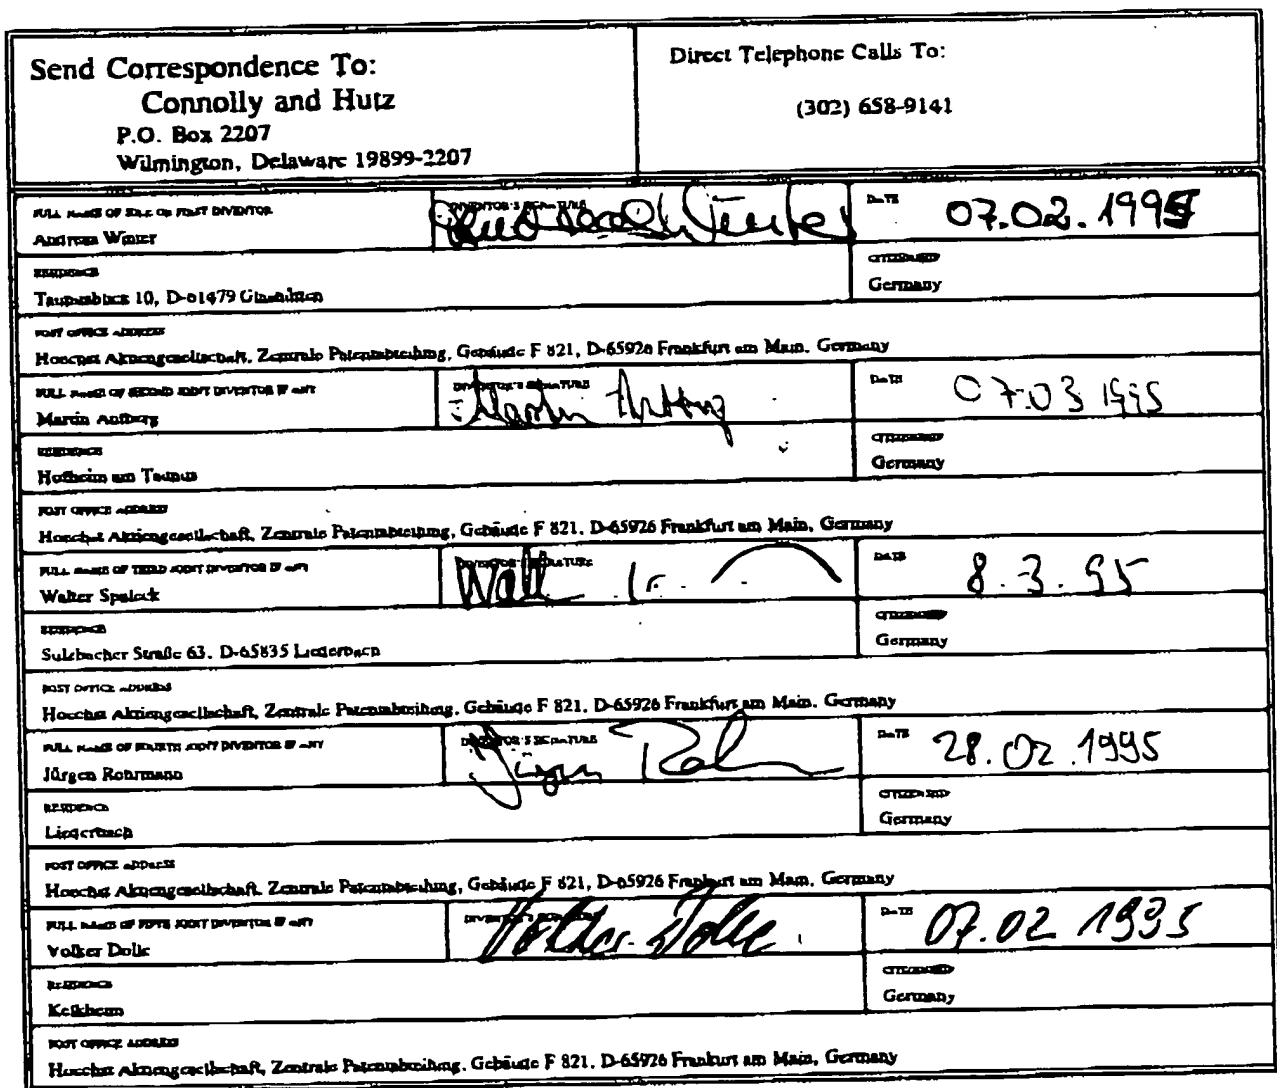 Send Correspondence To:
Connolly and Hutz
P.O. Box 2207
Wilmington, Delaware 19899-2207
Direct Telephone Calls To:
(302) 658-9141
FULL NAME OF SOLE OR FIRST INVENTOR
Andreas Winter
INVENTOR'S SIGNATURE
Andreas Winter
DATE
07.02.1995
RESIDENCE
10, D-61479
CITIZENSHIP
Germany
POST OFFICE ADDRESS
Hoechst Aktiengesellschaft, Zentrale Patentabteilung, Gebäude F 821, D-65926 Frankfurt am Main, Germany
FULL NAME OF SECOND JOINT INVENTOR IF ANY
Martin Antberg
INVENTOR'S SIGNATURE
Martin Antberg
DATE
07.03 1995
RESIDENCE
Hofheim am Taunus
CITIZENSHIP
Germany
POST OFFICE ADDRESS
Hoechst Aktiengesellschaft, Zentrale Patentabteilung, Gebäude F 821, D-65926 Frankfurt am Main, Germany
FULL NAME OF THIRD JOINT INVENTOR IF ANY
Walter Spaleck
INVENTOR'S SIGNATURE
DATE
8.3.95
RESIDENCE
Sulzbacher Straße 63, D-65835 Liederbach
CITIZENSHIP
Germany
POST OFFICE ADDRESS
Hoechst Aktiengesellschaft, Zentrale Patentabteilung, Gebäude F 821, D-65926 Frankfurt am Main, Germany
FULL NAME OF FOURTH JOINT INVENTOR IF ANY
Jürgen Rohrmann
INVENTOR'S SIGNATURE
Jürgen
DATE
28.02.1995
RESIDENCE
Liederbach
CITIZENSHIP
Germany
POST OFFICE ADDRESS
Hoechst Aktiengesellschaft, Zentrale Patentabteilung, Gebäude F 821, D-65926 Frankfurt am Main, Germany
FULL NAME OF FIFTH JOINT INVENTOR IF ANY
Volker Dolle
INVENTOR'S SIGNATURE
Volker Dolle
DATE
07.02 1995
RESIDENCE
Kelkheim
CITIZENSHIP
Germany
POST OFFICE ADDRESS
Hoechst Aktiengesellschaft, Zentrale Patentabteilung, Gebäude F 821, D-65926 Frankfurt am Main, Germany